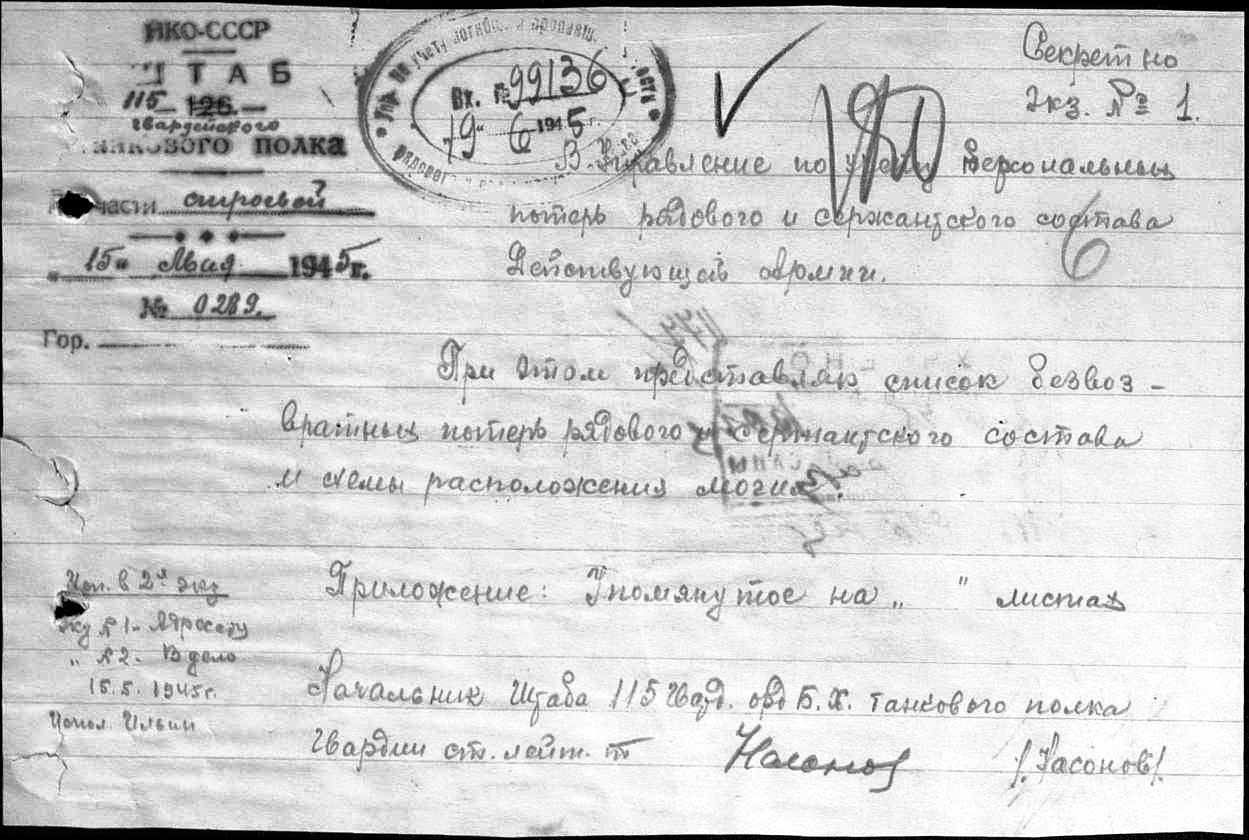 НКО-СССР
ШТАБ
115 126
гвардейского
танкового полка
По части строевой
"15" Мая 1945 г.
№ 0289.
Гор.
учету погибш. и пропавш.
Вх. № 99136
19" 6 1945 г.
Секретно
Экз. № 1.
В Управление по учету персональных
потерь рядового и сержантского состава
Действующей Армии.
При этом представляю список безвоз-
вратных потерь рядового и сержантского состава
и схемы расположения могил.
Приложение: Упомянутое на " " листах
Начальник Штаба 115 Гвард. орд Б.Х. танкового полка
Гвардии ст. лейт. т Насонов /Насонов/.
Исп. в 2х экз
экз № 1 - Адресату
" № 2 - В дело
15.5.1945 г.
Испол. Ильин